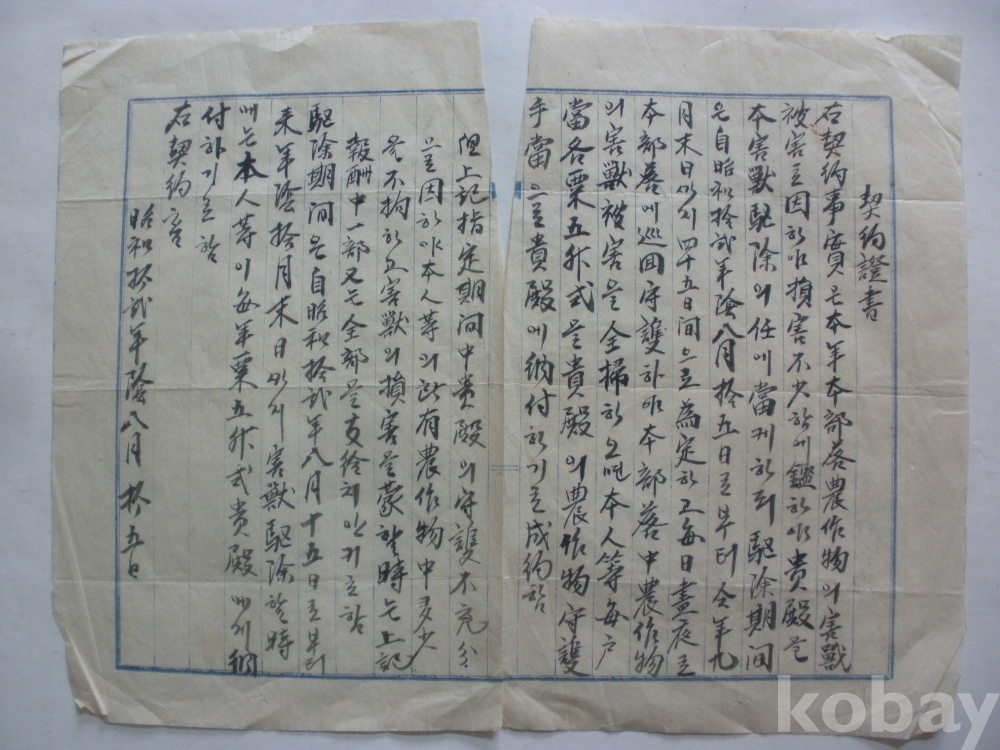 契約證書
右契約事實은本年本部落農作物의害獸
被害로因하야損害不少함에鑑하야貴殿을
本害獸駆除의任에當케하되駆除期間
은自昭和拾弍年陰八月拾五日로부터仝年九
月末日까지四十五日间으로為定하고每日晝夜로
本部落에巡回守護하야本部落中農作物
의害獸被害을全掃하오면本人等每戶
當各粟五升式을貴殿의農作物守護
手當으로貴殿에納付하기로成約함
但上記指定期间中貴殿의守護不充分
으로因하야本人等의此有農作物中多少
을不拘하고害獸의損害을蒙할時는上記
報酬中一部又는全部을支給치안키로함
駆除期间은自昭和拾弍年八月十五日로부터
来年陰拾月末日까지害獸駆除할時
에는本人等이每年粟五升式貴殿에게納
付하기로함
右契約함
昭和拾弍年陰八月拾五日
kobay